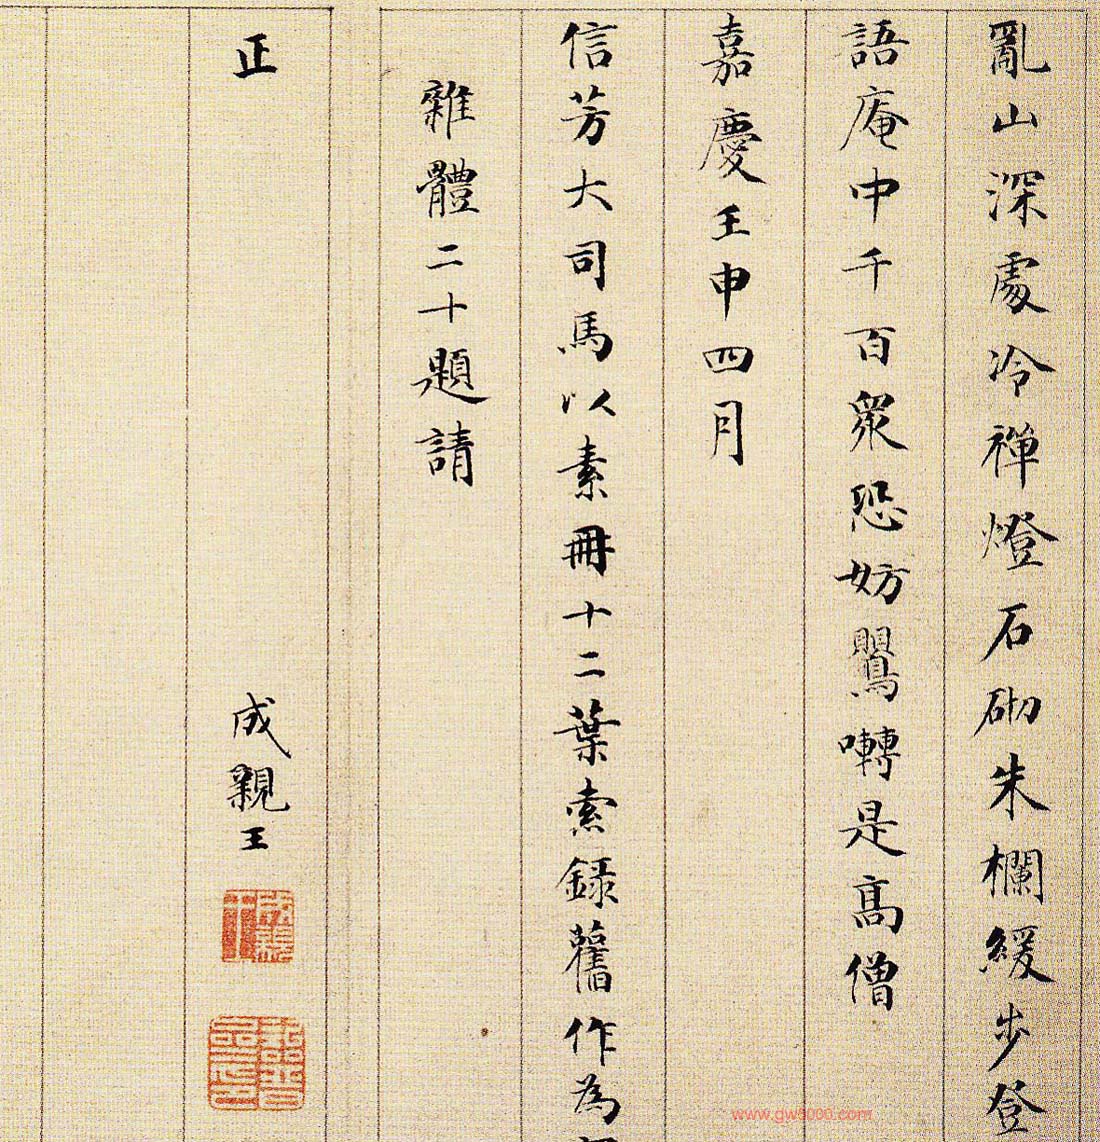 亂山深處冷禪燈石砌朱欄緩步登
語庵中千百衆恐妨鸎囀是高僧
嘉慶壬申四月
信芳大司馬以素冊十二葉索錄舊作為
雜體二十題請
正
成親王
www.gw5000.com